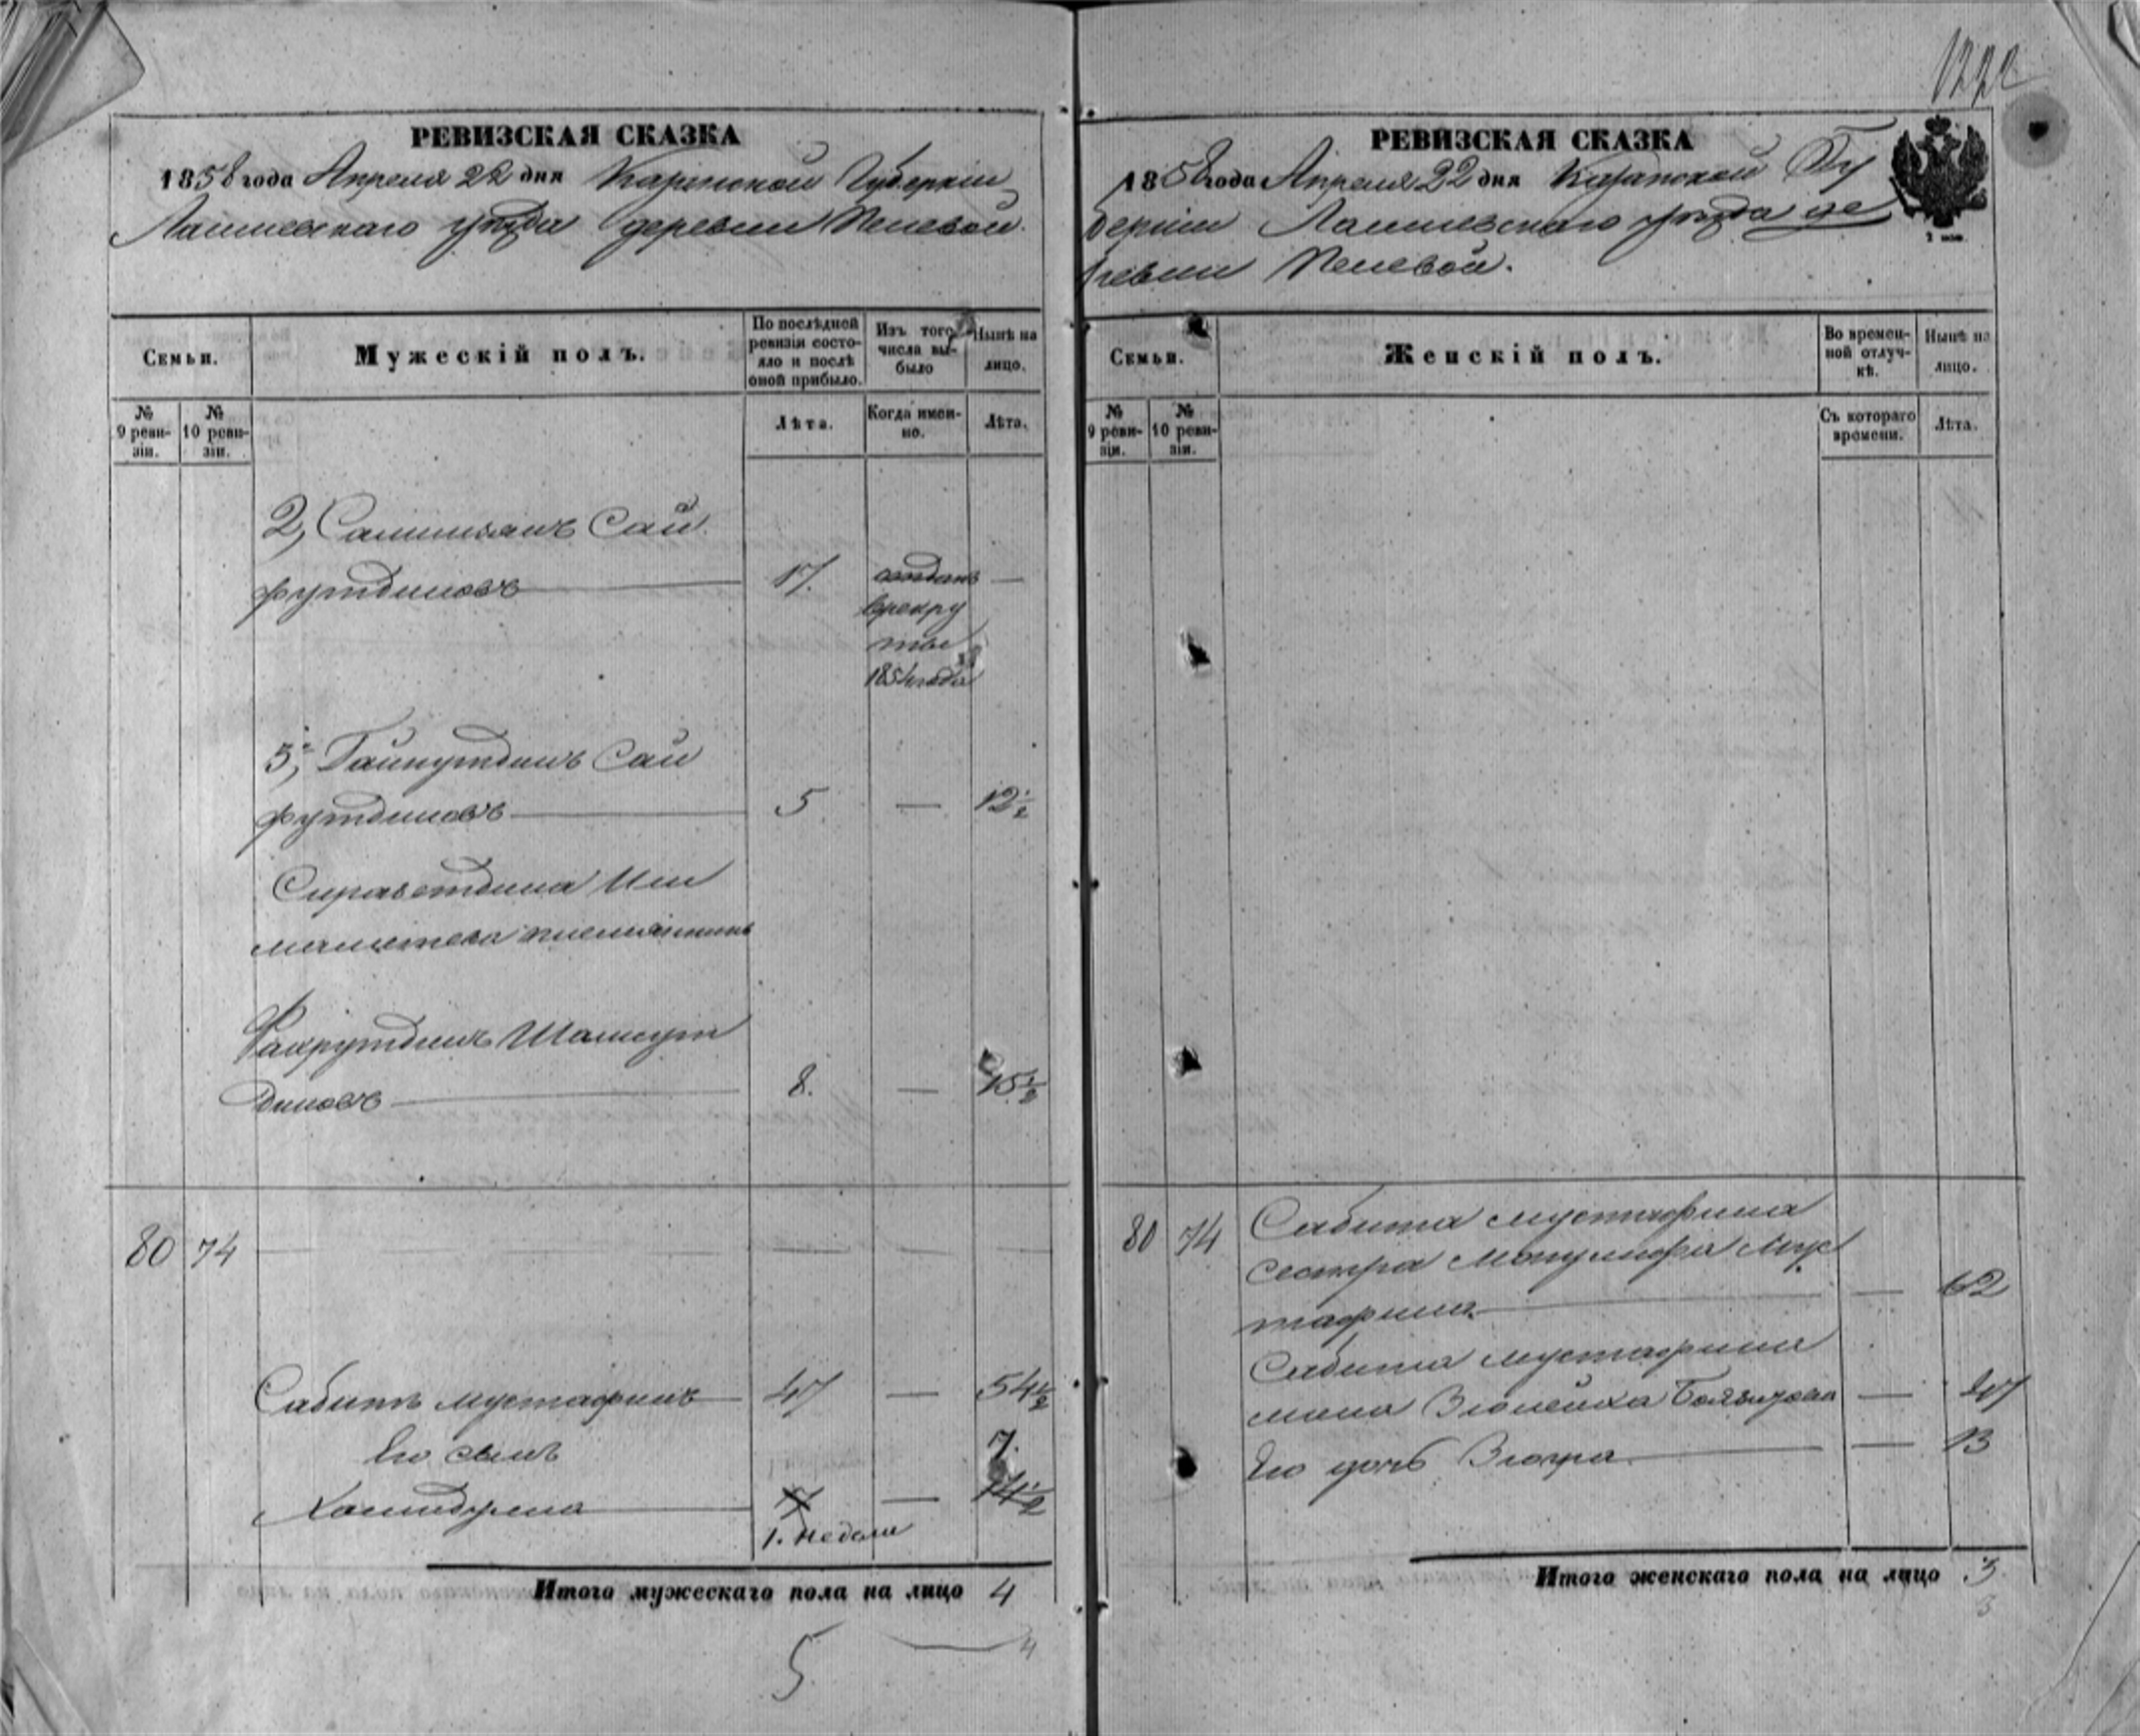 РЕВИЗСКАЯ СКАЗКА
1858 года Апреля 22 дня Казанской Губернiи
Лаишевскаго уѣзда деревни
Семьи.
Мужескiй полъ.
По послѣдней ревизiи состояло и послѣ оной прибыло.
Изъ того числа выбыло
Нынѣ на лицо.
№ 9 ревизiи.
№ 10 ревизiи.
Лѣта.
Когда именно.
Лѣта.
2, Сай
футдиновъ 17. отданъ —
врекру
ты
1854 года
3, Гайнутдинъ Сай
футдиновъ 5 — 12 1/2
Сиразетдина Иш
маметева племянникъ
Фахрутдинъ Шамсут
диновъ 8. — 15 1/2
80 74
Сабитъ Мустафинъ 47 — 54 1/2
Его сынъ 7.
—
1. недели
Итого мужескаго пола на лицо 4
5 4
РЕВИЗСКАЯ СКАЗКА
1858 года Апреля 22 дня Казанской Гу
бернiи Лаишевскаго уѣзда де
ревни
Семьи.
Женскiй полъ.
Во временной отлучкѣ.
Нынѣ на лицо.
№ 9 ревизiи.
№ 10 ревизiи.
Съ котораго времени.
Лѣта.
80 74 Сабита Мустафина
сестра Мус
тафина — 62
Сабита Мустафина
жена — 47
Его дочь Зюгра — 13
Итого женскаго пола на лицо 3
3